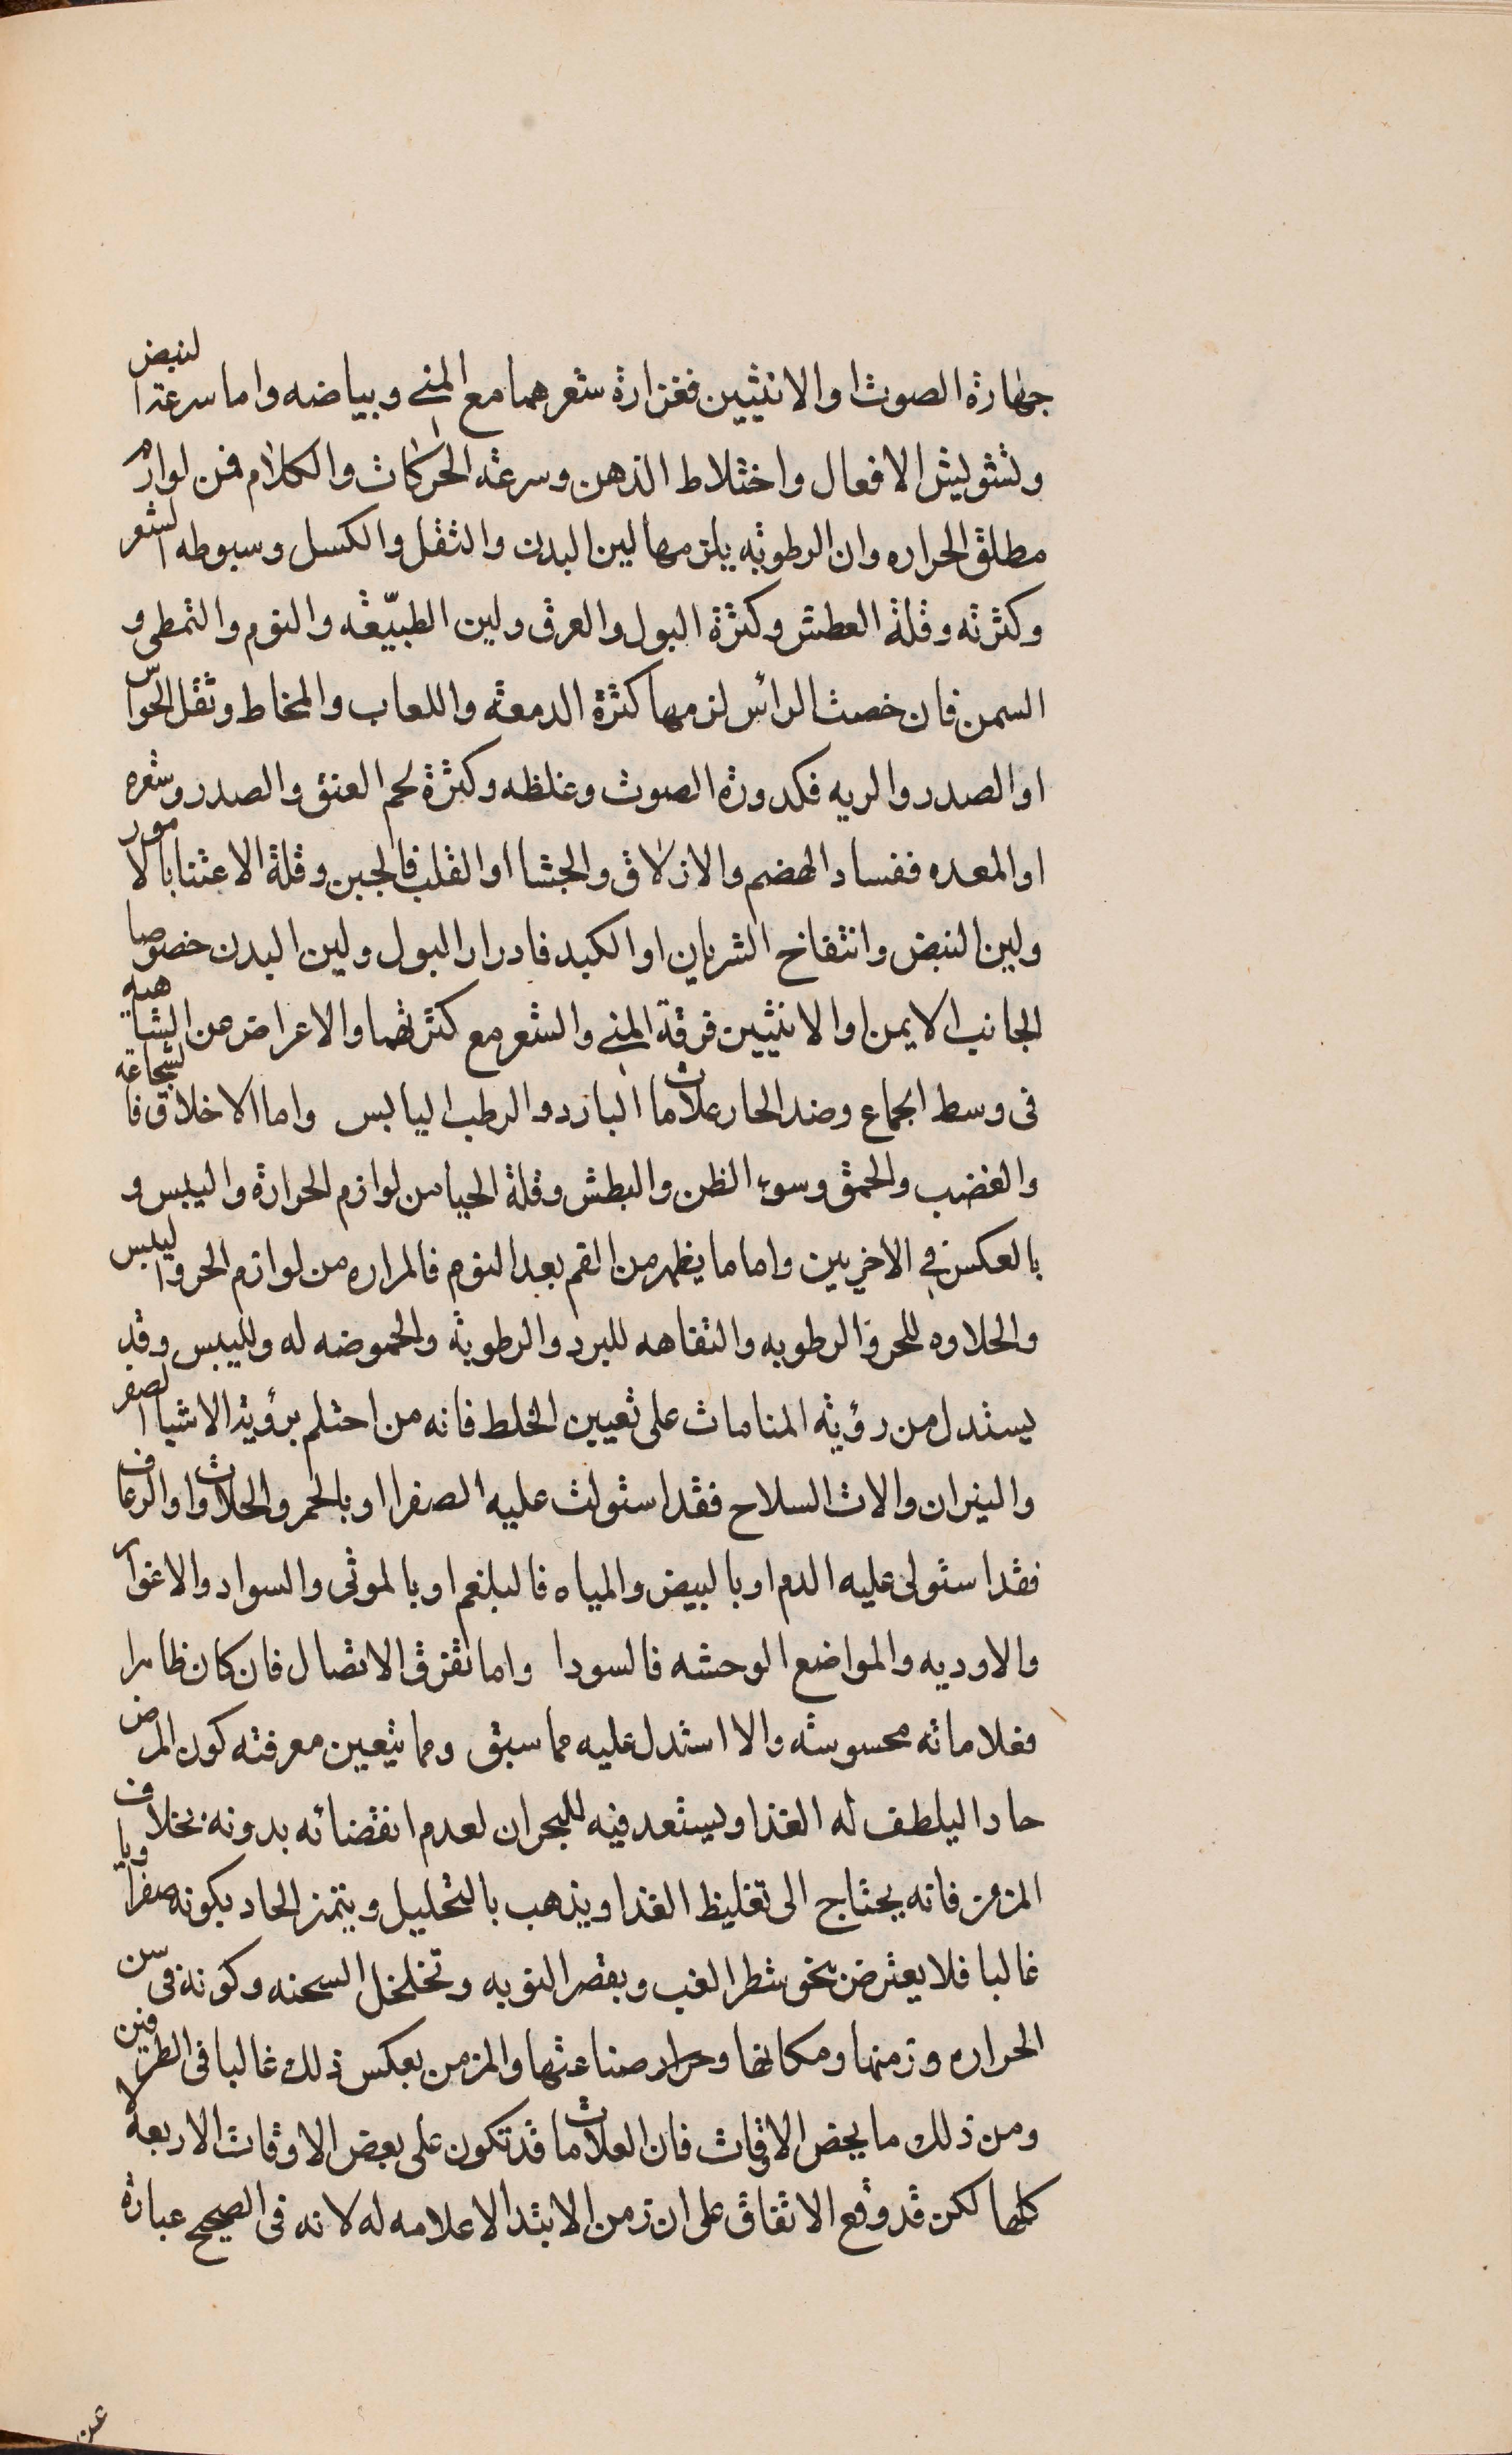 جهارة الصوت او الانثيين فغزارة شعرهما مع المني وبياضه واما سرعة النبض
وتشويش الافعال واختلاط الذهن وسرعة الحركات والكلام فمن لوازم
مطلق الحراره وان الرطوبه يلزمها لين البدن والثقل والكسل وسبوطه الشعر
وكثرته وقلة العطش وكثرة البول والعرق ولين الطبيّعه والنوم والتمطى و
السمن فان خصت الرأس لزمها كثرة الدمعة واللعاب والمخاط وثقل الحواس
او الصدر والريه فكدورة الصوت وغلظه وكثرة لحم العنق والصدر وشعره
او المعده ففساد الهضم والازلاق والجشا او القلب فالجبن وقلة الاعتنا بالامور
ولين النبض وانتفاخ الشريان او الكبد فادرار البول ولين البدن خصوصا
الجانب الايمن او الانثيين فرقة المني والشعر مع كثرتهما والاعراض عن الشاهيه
فى وسط الجماع وضد الحار علامات البارد والرطب اليابس واما الاخلاق فالشجاعة
والغضب والحمق وسوء الظن والبطش وقلة الحيا من لوازم الحرارة واليبس و
بالعكس في الاخريين واما ما يظهر من الفم بعد النوم فالمراره من لوازم الحر واليبس
والحلاوه للحر والرطوبه والتفاهه للبرد والرطوبة والحموضه له ولليبس وقد
يستدل من رؤية المنامات على تعيين الخلط فانه من احتلم برؤية الاشيا الصفر
والنيران والات السلاح فقد استولت عليه الصفرا او بالحمر والحلاوات او الرعاف
فقد استولى عليه الدم او بالبيض والمياه فالبلغم او بالموتى والسواد والاغوار
والاوديه والمواضع الوحشه فالسودا واما تفرق الاتصال فان كان ظاهرا
فعلاماته محسوسة والا استدل عليه مما سبق ومما يتعين معرفته كون المرض
حادا ليلطف له الغذا ويستعد فيه للبحران لعدم انقضائه بدونه بخلاف
المزمن فانه يحتاج الى تغليظ الغذا ويذهب بالتحليل ويتميز الحاد بكونه صفراويا
غالبا فلا يعترض بنحو شطر الغب وبقصر النوبه وتخلخل السحنه وكونه فى سن
الحراره وزمنها ومكانها وحرار صناعتها والمزمن بعكس ذلك غالبا فى الطرفين
ومن ذلك ما يخص الاوقات فان العلامات قد تكون على بعض الاوقات الاربعة لا
كلها لكن قد وقع الاتفاق على ان زمن الابتدا لا علامه له لانه فى الصحيح عبارة
عن